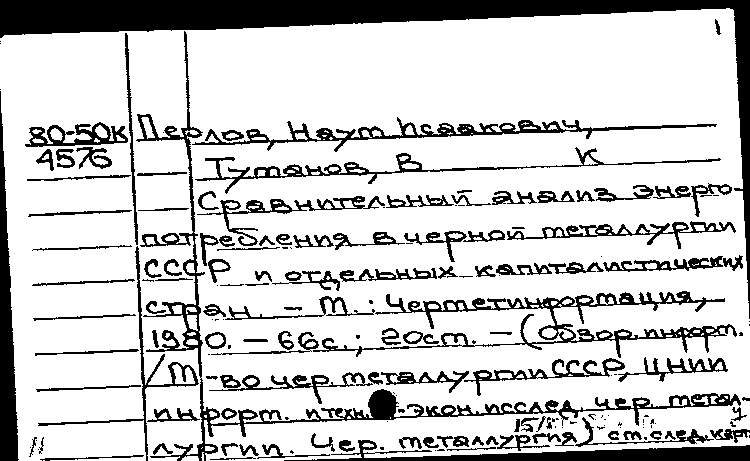 1
80-50к Перлов, Наум Исаакович,
4576 Тутанов, В К
Сравнительный анализ энерго-
потребления в черной металлургии
СССР и отдельных капиталистических
стран. – М.: Черметинформация,
1980. – 66с.; 20см. – (Обзор. информ.
/М-во чер. металлургии СССР, ЦНИИ
информ. и техн.-экон. исслед. чер. метал-
лургии. Чер. металлургия) см. след. карт